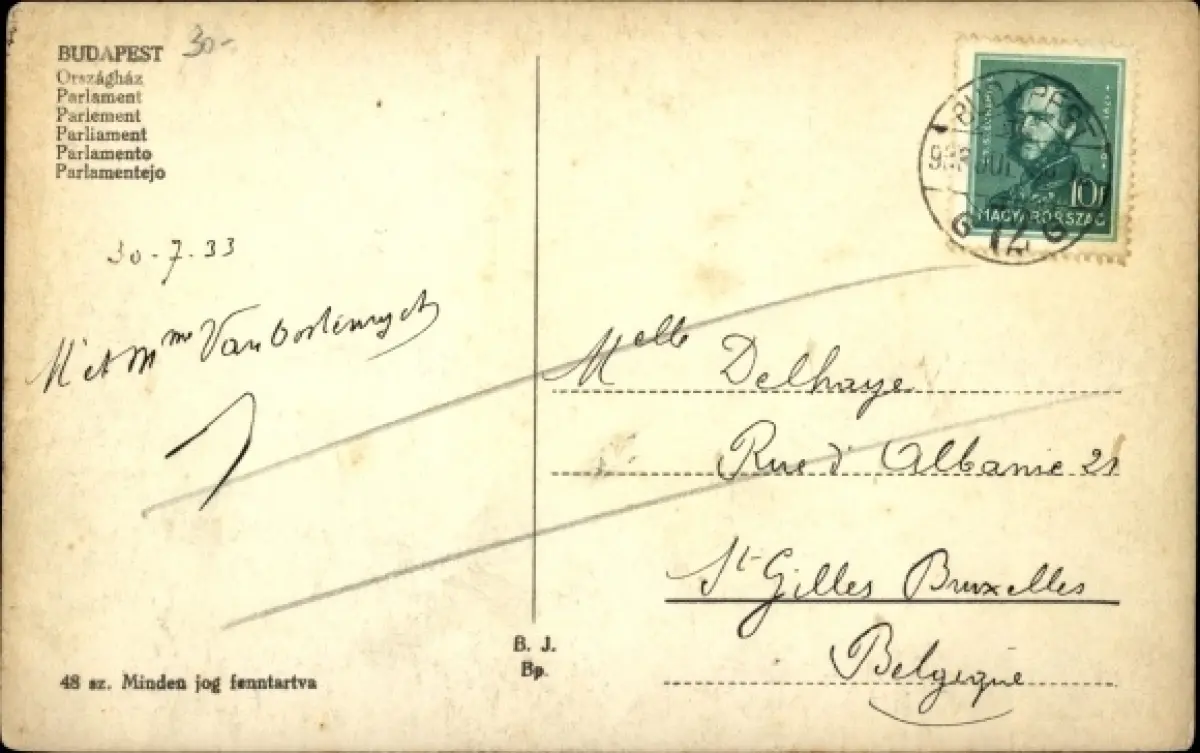 BUDAPEST 30-
Országház
Parlament
Parlement
Parliament
Parlamento
Parlamentejo
BUDAPEST
JUL
72
G G
10f
MAGYARORSZÁG
30-7-33
M et Mme
Melle Delhaye
Rue d' Albanie 21
St Gilles Bruxelles
Belgique
B. J.
Bp.
48 sz. Minden jog fenntartva